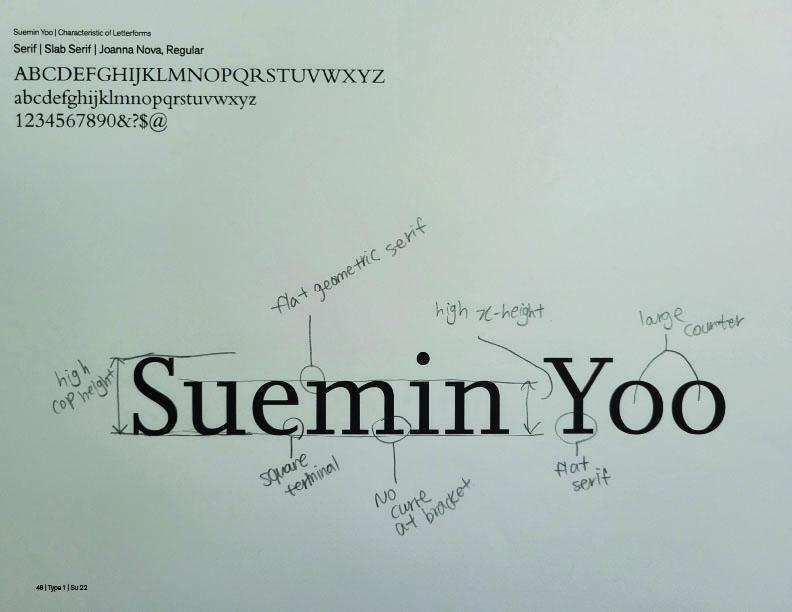 Suemin Yoo | Characteristic of Letterforms
Serif | Slab Serif | Joanna Nova, Regular
ABCDEFGHIJKLMNOPQRSTUVWXYZ
abcdefghijklmnopqrstuvwxyz
1234567890&?$@
flat geometric serif
high x-height
large
counter
high
cop height
Suemin Yoo
square
terminal
No
curve
at bracket
flat
serif
48 | Type 1 | Su 22